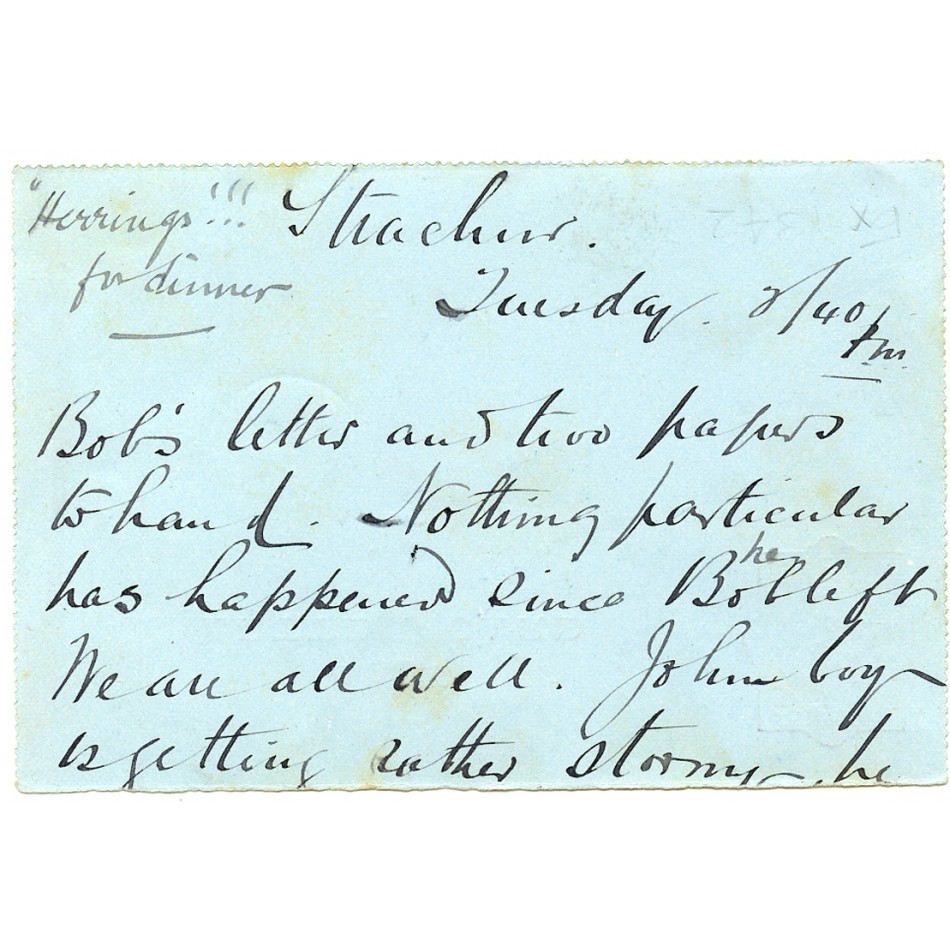 "Herrings"!!!
for dinner
Strachur.
Tuesday. 2/40
pm.
Bob's letter and two papers
to hand. Nothing particular
he
has happened since Bob left
We are all well. John boy
is getting rather stormy, he